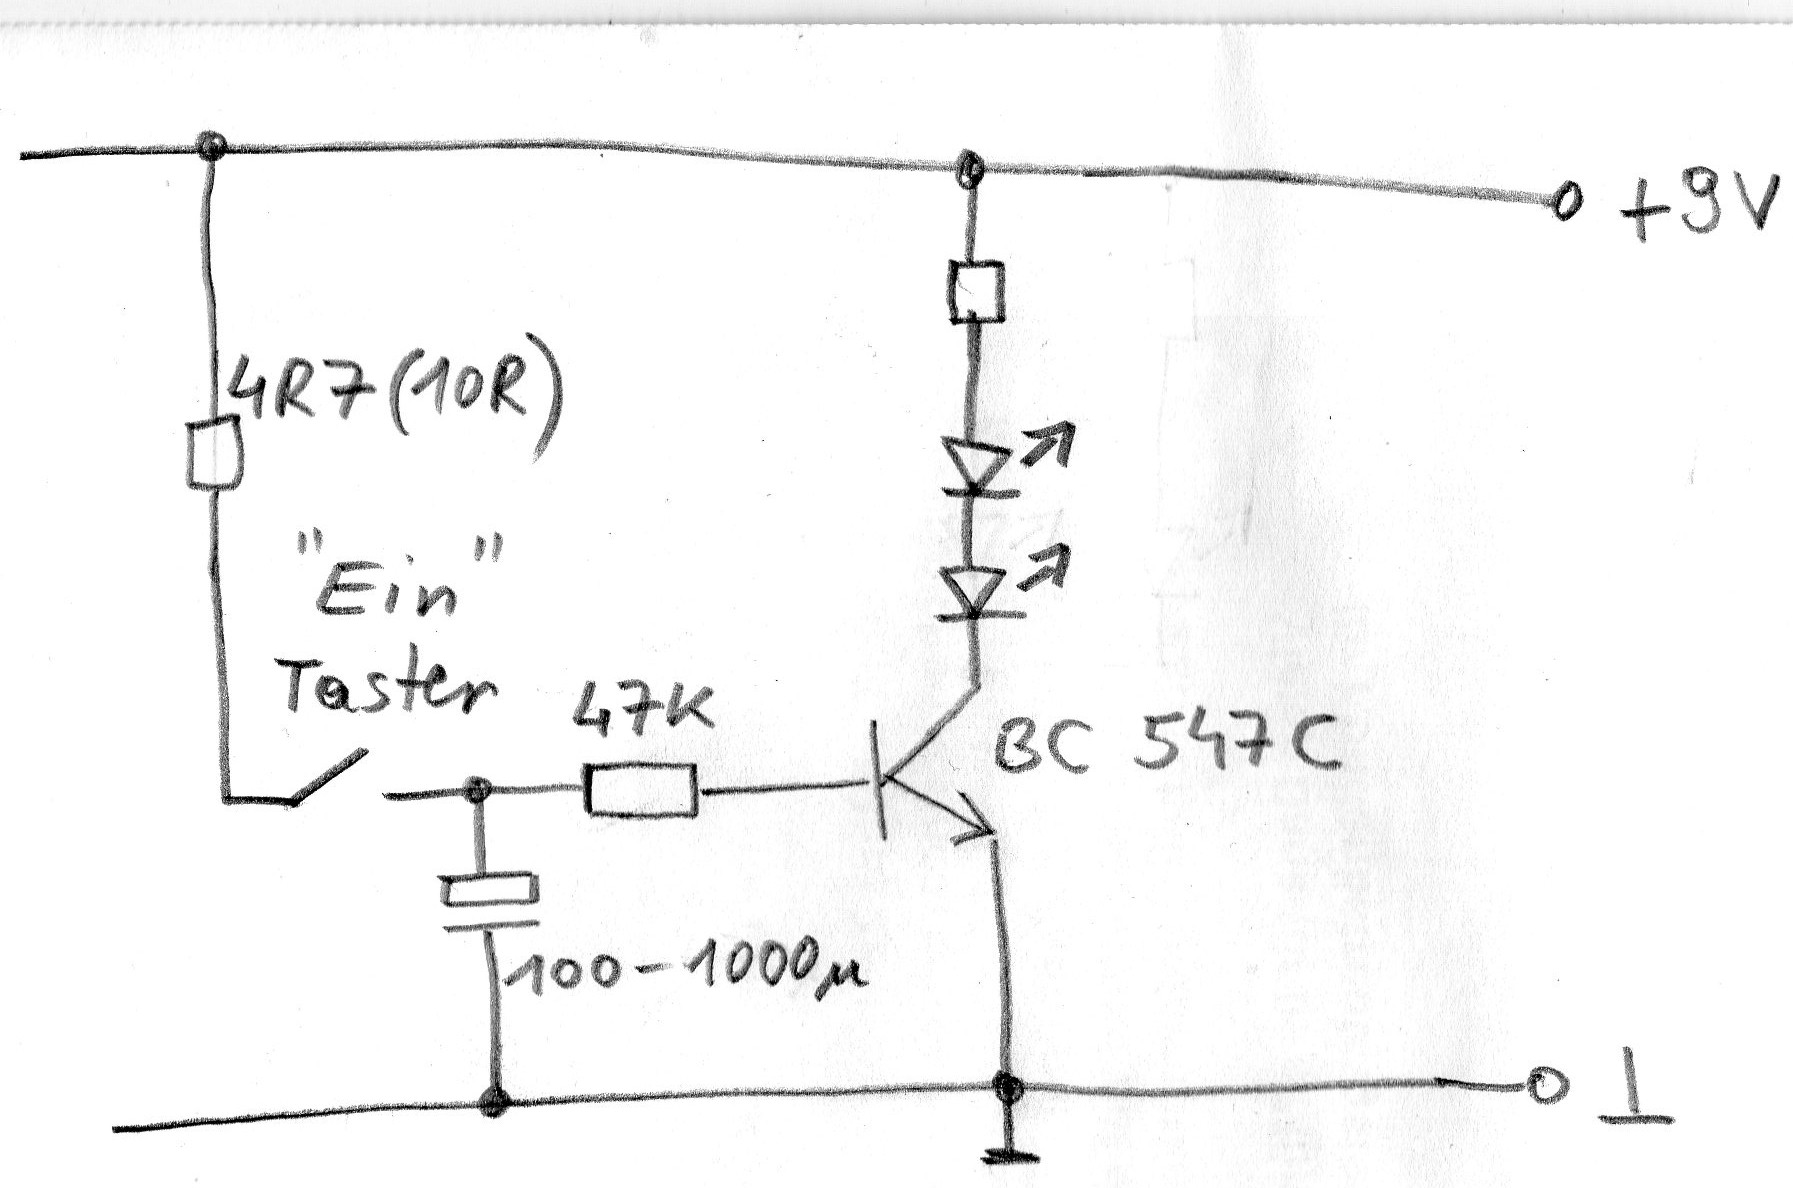 +9V
4R7(10R)
"Ein"
Taster
47K
BC 547C
100-1000µ